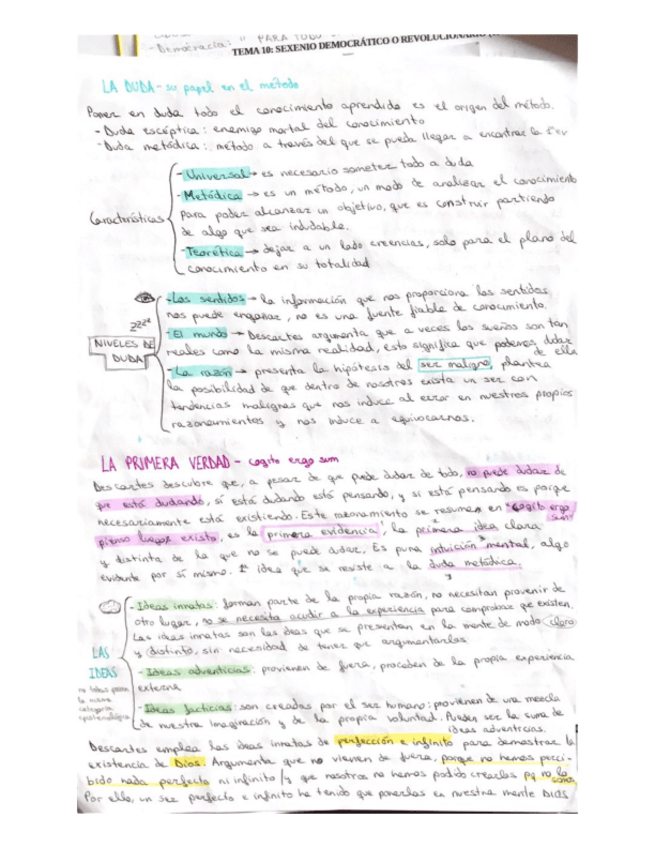 -Democracia: " PARA TODO
TEMA 10: SEXENIO DEMOCRÁTICO O REVOLUCIONARIO
LA DUDA - su papel en el método
Poner en duda todo el conocimiento aprendido es el origen del método.
- Duda escéptica: enemigo mortal del conocimiento
- Duda metódica: método a través del que se pueda llegar a encontrar la 1ª ver
Características
- Universal → es necesario someter todo a duda
- Metódica → es un método, un modo de analizar el conocimiento
para poder alcanzar un objetivo, que es construir partiendo
de algo que sea indudable.
- Teorética → dejar a un lado creencias, solo para el plano del
conocimiento en su totalidad
zzzz
NIVELES DE
DUDA
- Los sentidos → la información que nos proporciona los sentidos
nos puede engañar, no es una fuente fiable de conocimiento.
- El mundo → Descartes argumenta que a veces los sueños son tan
reales como la misma realidad, esto significa que podemos dudar
de ella
- La razón → presenta la hipótesis del ser maligno, plantea
la posibilidad de que dentro de nosotros exista un ser con
tendencias malignas que nos induce al error en nuestros propios
razonamientos y nos induce a equivocarnos.
LA PRIMERA VERDAD - cogito ergo sum
Descartes descubre que, a pesar de que puede dudar de todo, no puede dudar de
que está dudando, si está dudando está pensando, y si está pensando es porque
necesariamente está existiendo. Este razonamiento se resume en "cogito ergo
sum"
pienso luego existo, es la primera evidencia, la primera idea clara
y distinta de la que no se puede dudar. Es pura intuición mental, algo
evidente por sí mismo. 1ª idea que se resiste a la duda metódica.
LAS
IDEAS
no todas poseen
la misma
categoría
epistemológica
- Ideas innatas: forman parte de la propia razón, no necesitan provenir de
otro lugar, no se necesita acudir a la experiencia para comprobar que existen.
Las ideas innatas son las ideas que se presentan en la mente de modo claro
y distinto, sin necesidad de tener que argumentarlas
- Ideas adventicias: provienen de fuera, proceden de la propia experiencia
externa
- Ideas facticias: son creadas por el ser humano: provienen de una mezcla
de nuestra imaginación y de la propia voluntad. Pueden ser la suma de
ideas adventicias.
Descartes emplea las ideas innatas de perfección e infinito para demostrar la
existencia de Dios. Argumenta que no vienen de fuera, porque no hemos perci-
bido nada perfecto ni infinito / y que nosotros no hemos podido crearlas pq no lo
somos
Por ello, un ser perfecto e infinito ha tenido que ponerlas en nuestra mente DIOS